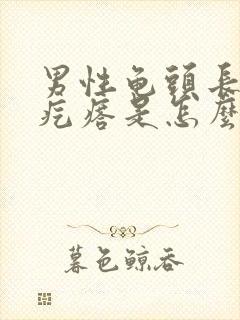 男性龟頭長
疙瘩是怎麼
暮色鲸吞